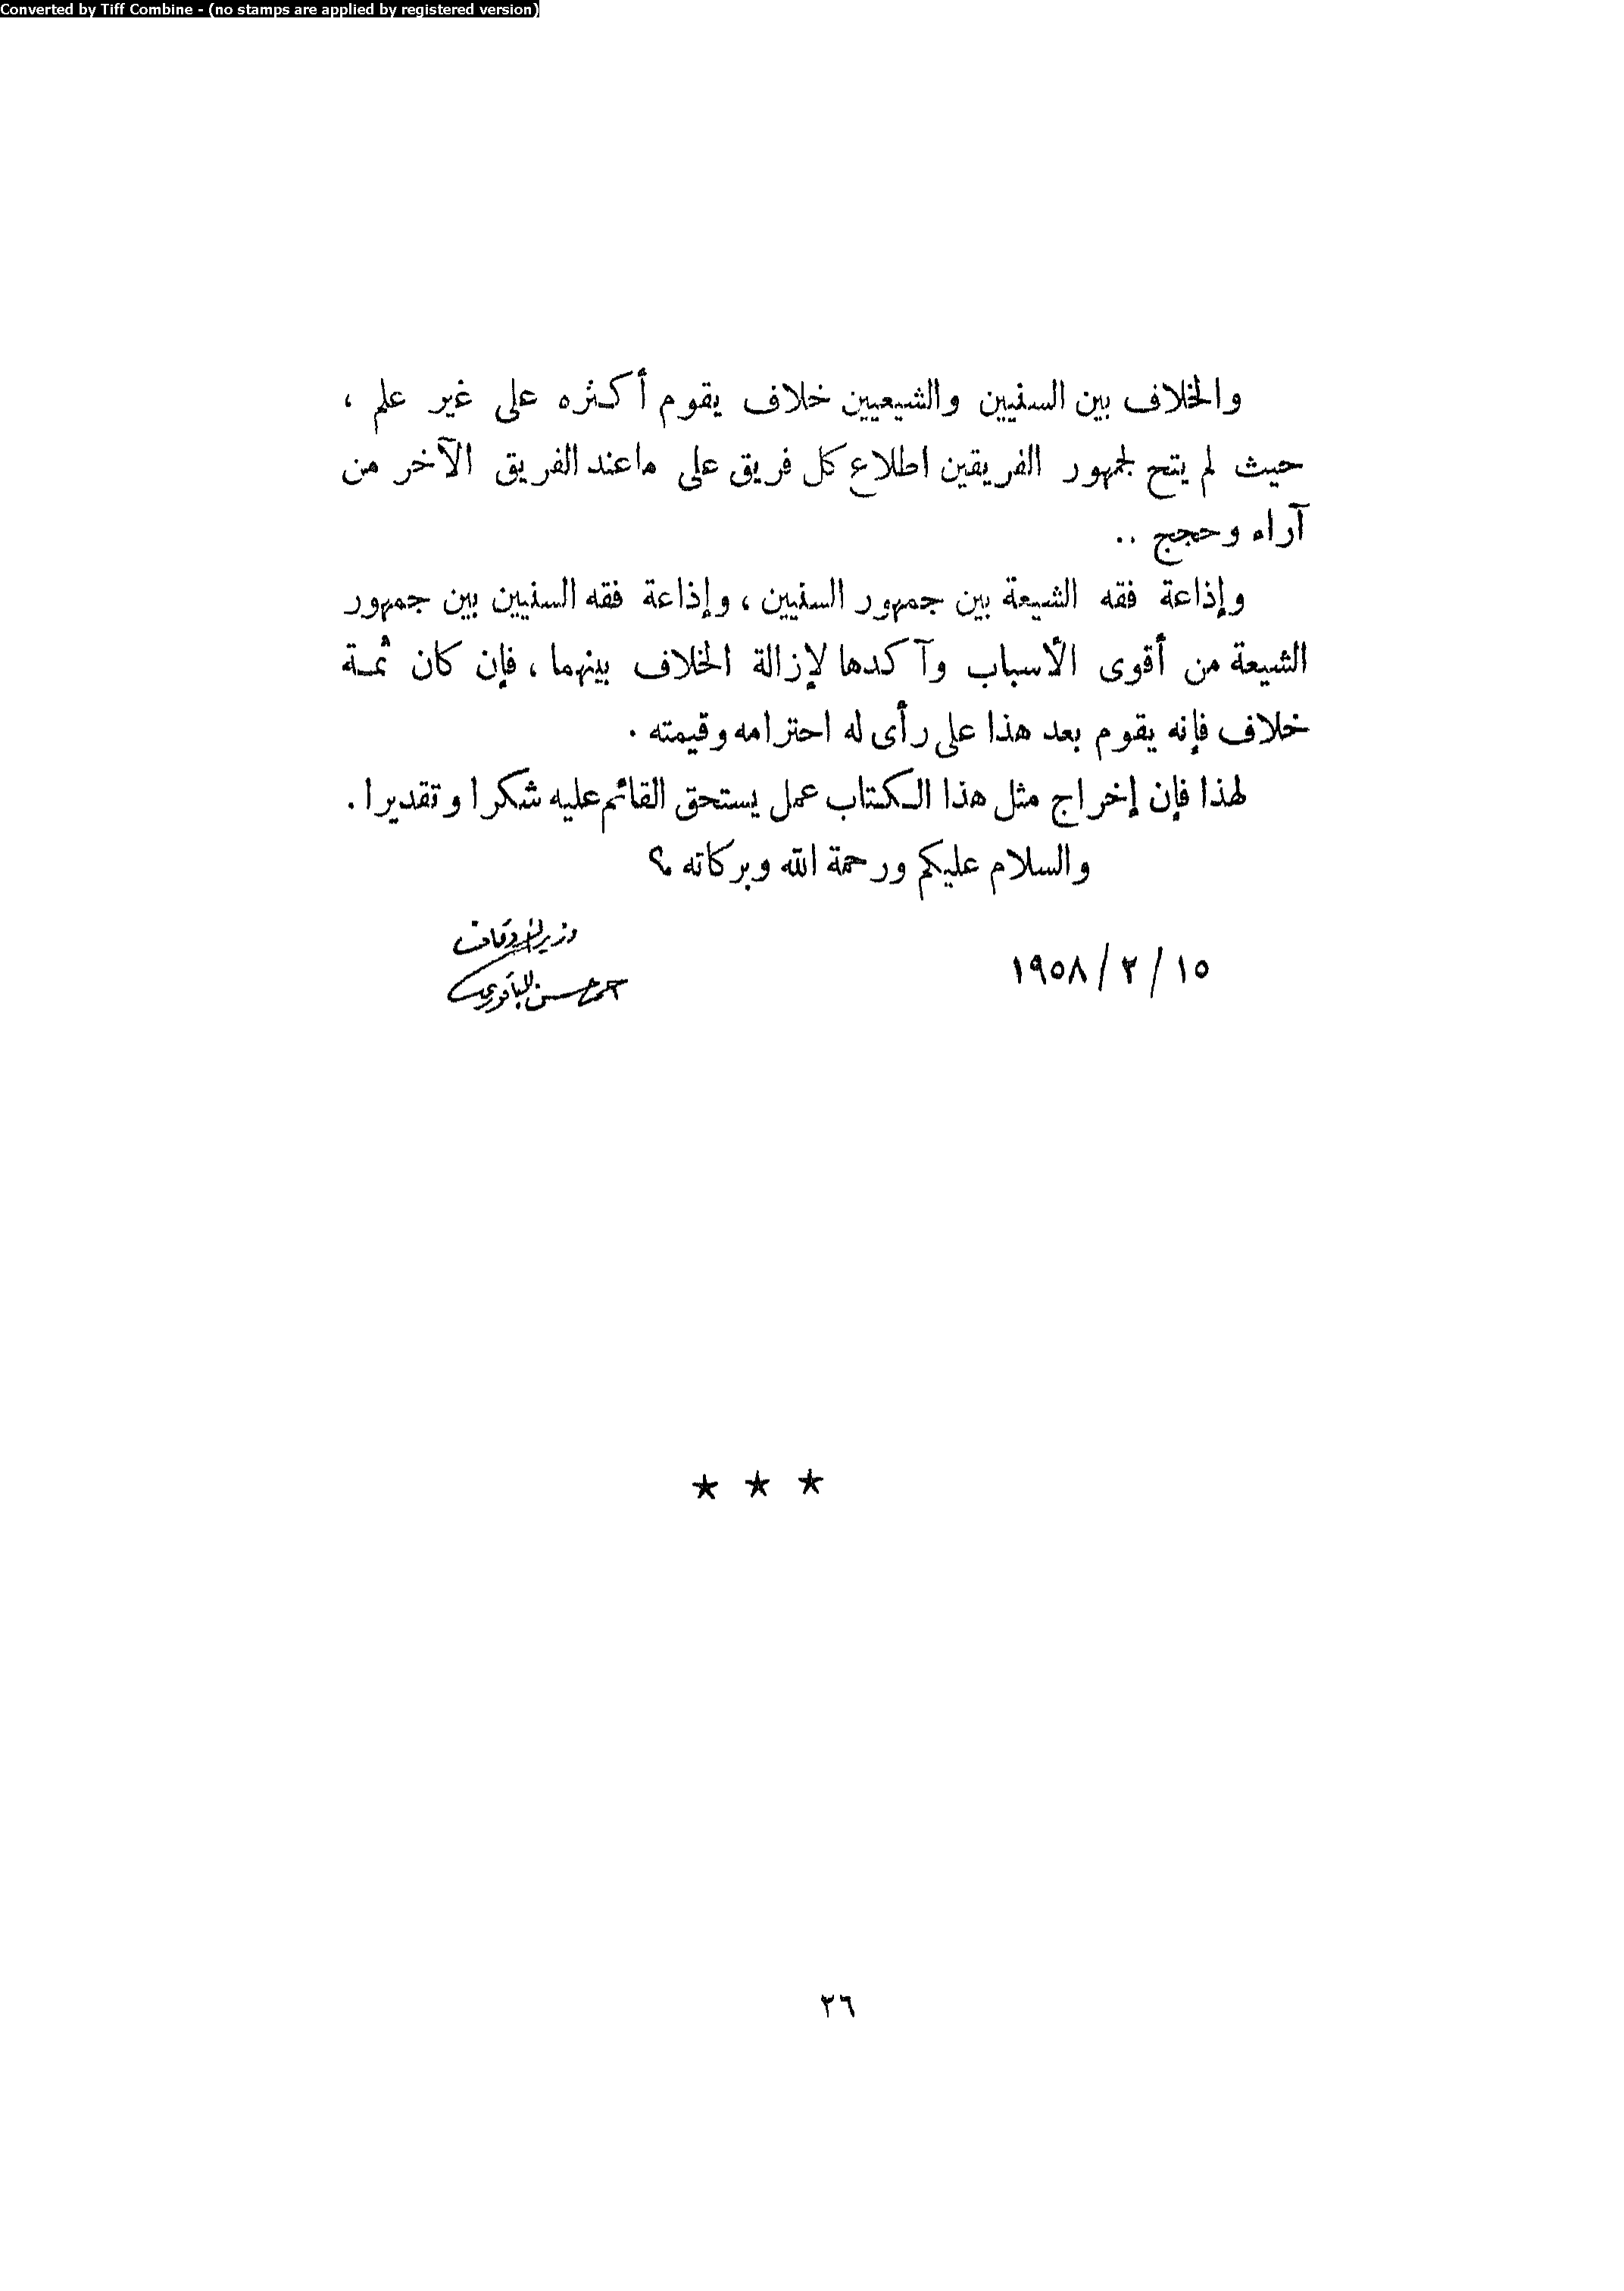 Converted by Tiff Combine - (no stamps are applied by registered version)
والخلاف بين السنيين والشيعيين خلاف يقوم أكثره على غير علم ،
حيث لم يتح لجمهور الفريقين اطلاع كل فريق على ماعند الفريق الآخر من
آراه وحجج ..
وإذاعة فقه الشيعة بين جمهور السنيين ، وإذاعة فقه السنيين بين جمهور
الشيعة من أقوى الأسباب وآكدها لإزالة الخلاف بينهما ، فإن كان ثمة
خلاف فإنه يقوم بعد هذا على رأى له احترامه وقيمته .
لهذا فإن إخراج مثل هذا الكتاب عمل يستحق القائم عليه شكرا وتقديرا .
والسلام عليكم ورحمة الله وبركاته ؟
وزير الأوقاف
١٥ / ٢ / ١٩٥٨
أحمد حسن الباقوري
★ ★ ★
٢٦